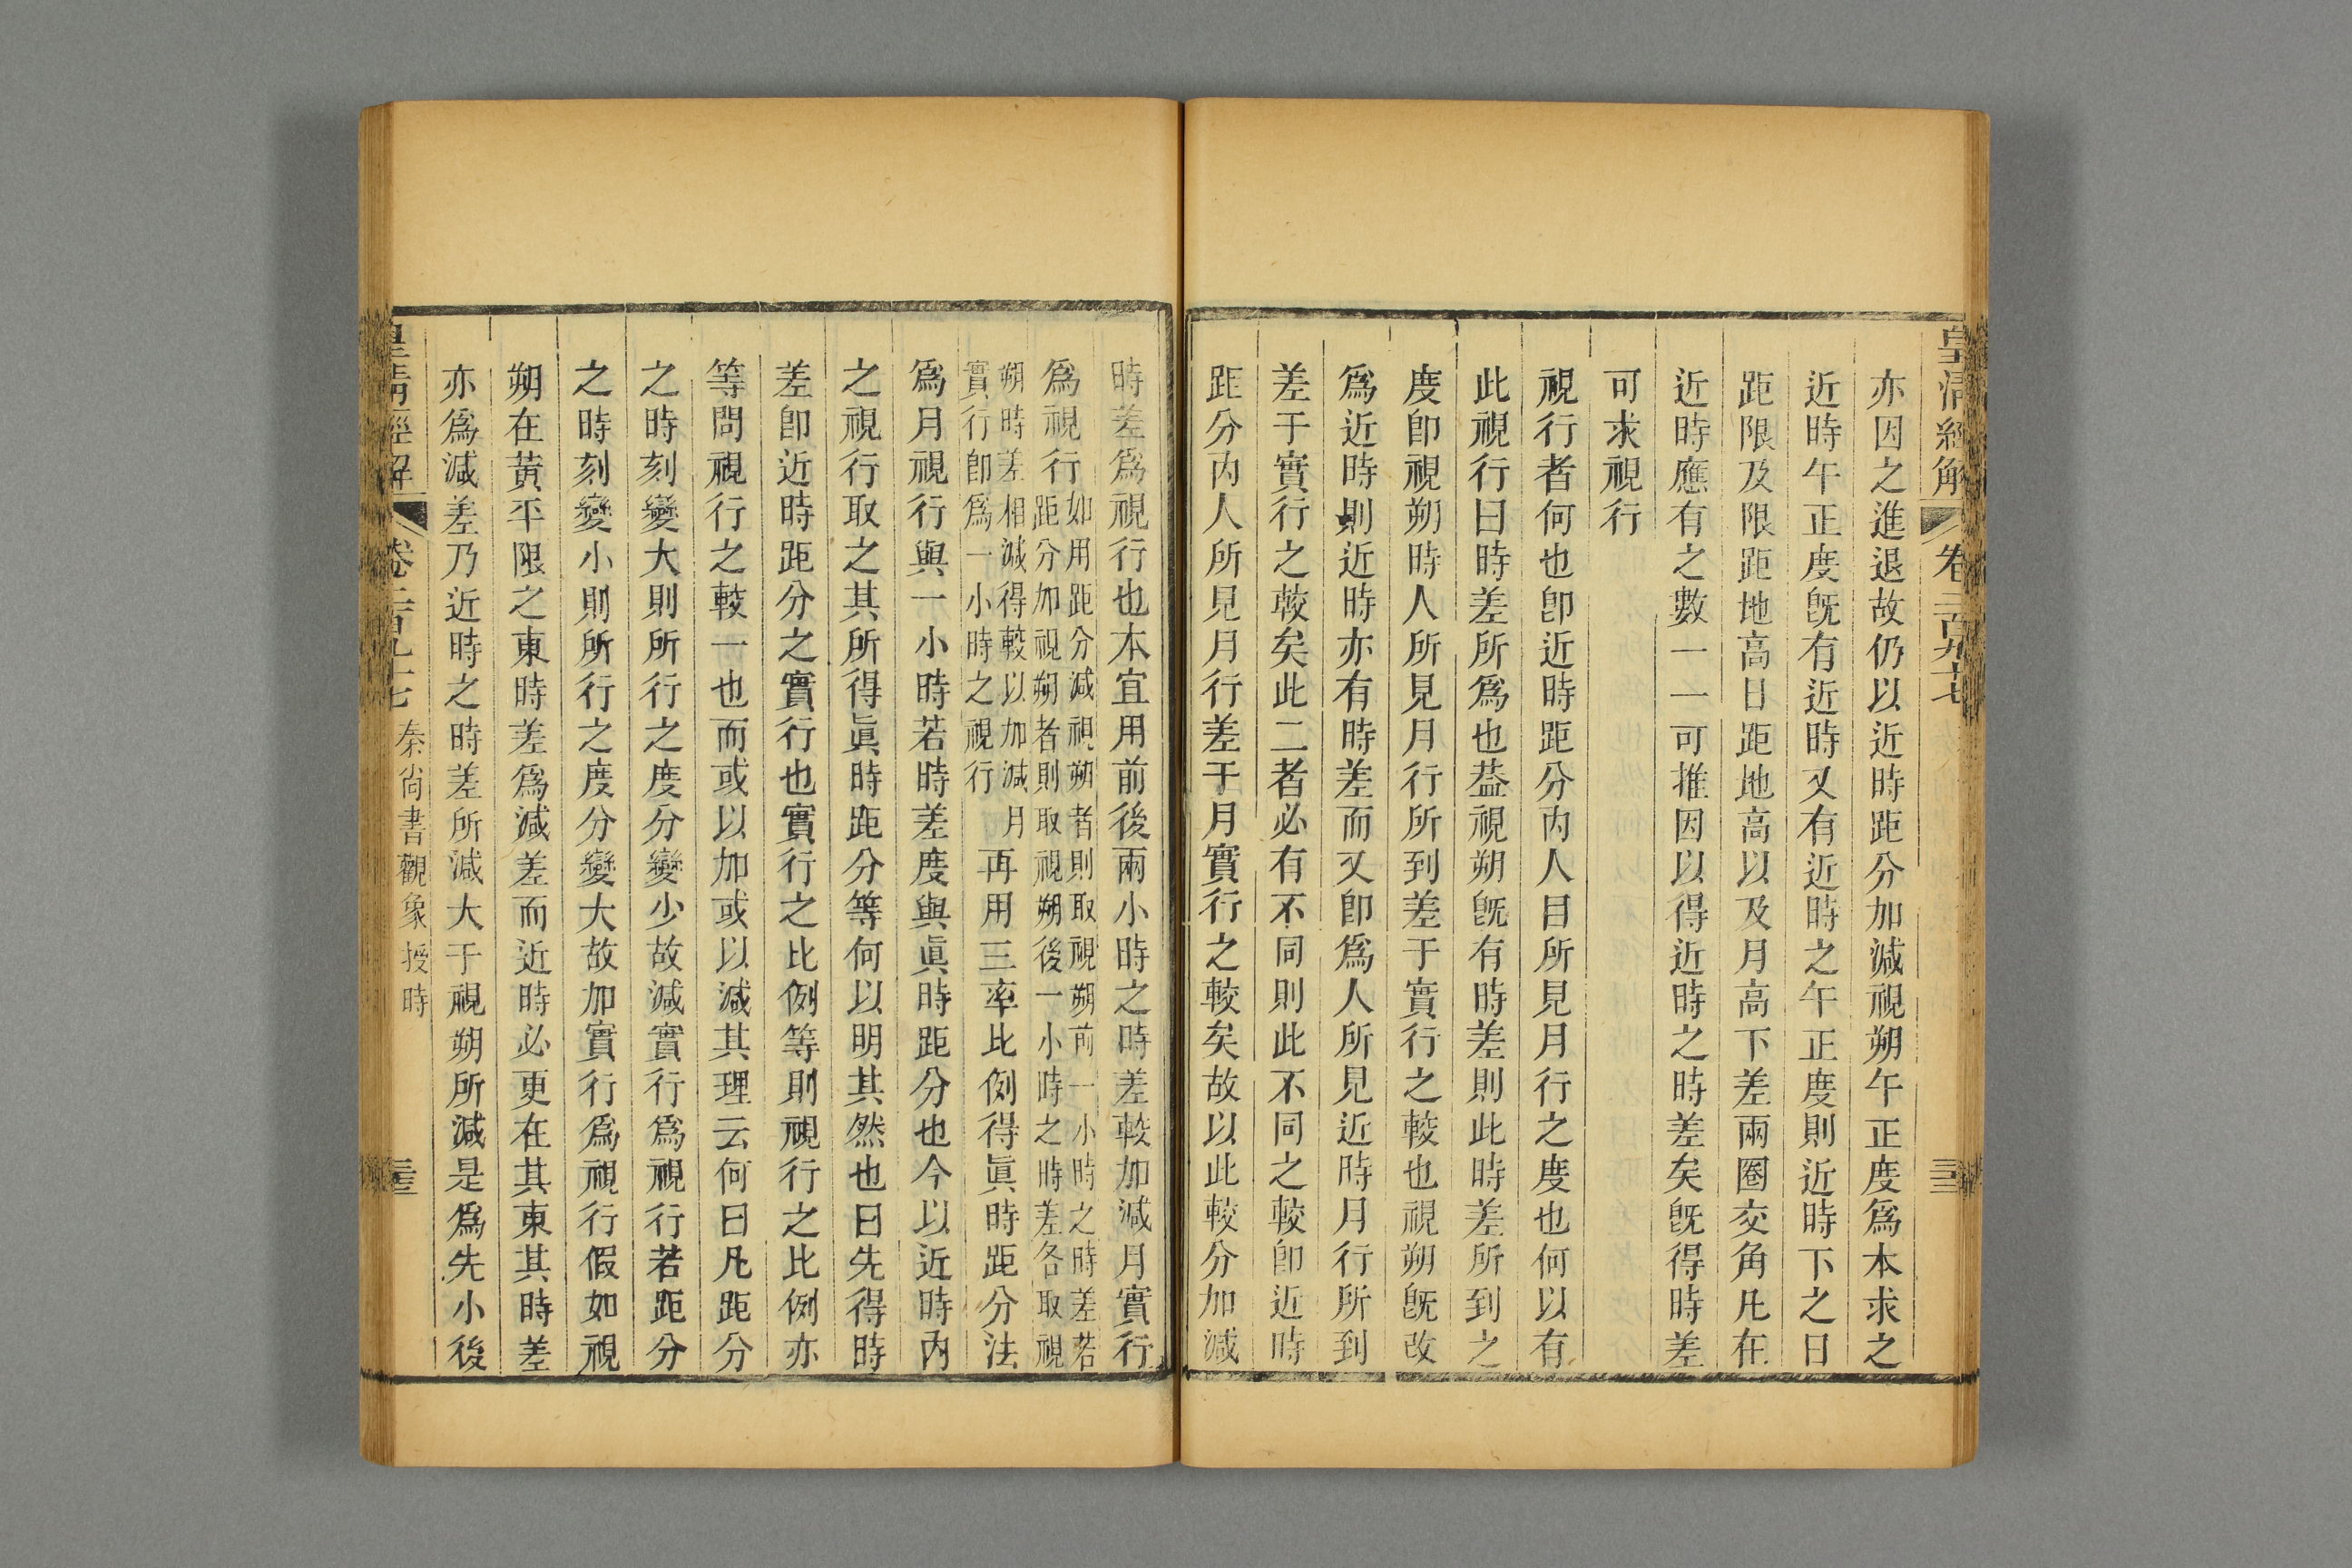 皇清經解
卷二百九十七
三十二
亦因之進退故仍以近時距分加減視朔午正度爲本求之
近時午正度旣有近時又有近時之午正度則近時下之日
距限及限距地高日距地高以及月高下差兩圈交角凡在
近時應有之數一一可推因以得近時之時差矣旣得時差
可求視行
視行者何也卽近時距分內人目所見月行之度也何以有
此視行曰時差所爲也葢視朔旣有時差則此時差所到之
度卽視朔時人所見月行所到差于實行之較也視朔旣改
爲近時則近時亦有時差而又卽爲人所見近時月行所到
差于實行之較矣此二者必有不同則此不同之較卽近時
距分內人所見月行差于月實行之較矣故以此較分加減
時差爲視行也本宜用前後兩小時之時差較加減月實行
爲視行如用距分減視朔者則取視朔前一小時之時差若
距分加視朔者則取視朔後一小時之時差各取視
朔時差相減得較以加減月
實行卽爲一小時之視行再用三率比例得眞時距分法
爲月視行與一小時若時差度與眞時距分也今以近時內
之視行取之其所得眞時距分等何以明其然也曰先得時
差卽近時距分之實行也實行之比例等則視行之比例亦
等問視行之較一也而或以加或以減其理云何曰凡距分
之時刻變大則所行之度分變少故減實行爲視行若距分
之時刻變小則所行之度分變大故加實行爲視行假如視
朔在黃平限之東時差爲減差而近時必更在其東其時差
亦爲減差乃近時之時差所減大于視朔所減是爲先小後
皇清經解
卷二百九十七
秦尙書觀象授時
三十三